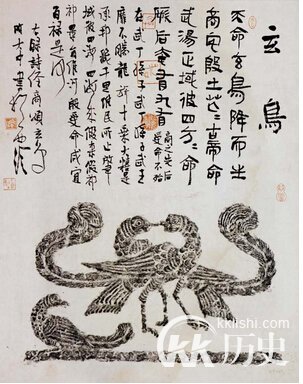 玄鳥
天命玄鳥降而生
商宅殷土芒芒古帝命
武湯正域彼四方方命
厥后奄有九有商之先后受命不殆
在武丁孫子武丁孫子武王
靡不勝龍旂十乘大糦是
承邦畿千里維民所止肇
域彼四海四海來假來假祁
祁景員維河殷受命咸宜
百祿是何
詩經商頌玄鳥
kklishi.com
KK历史